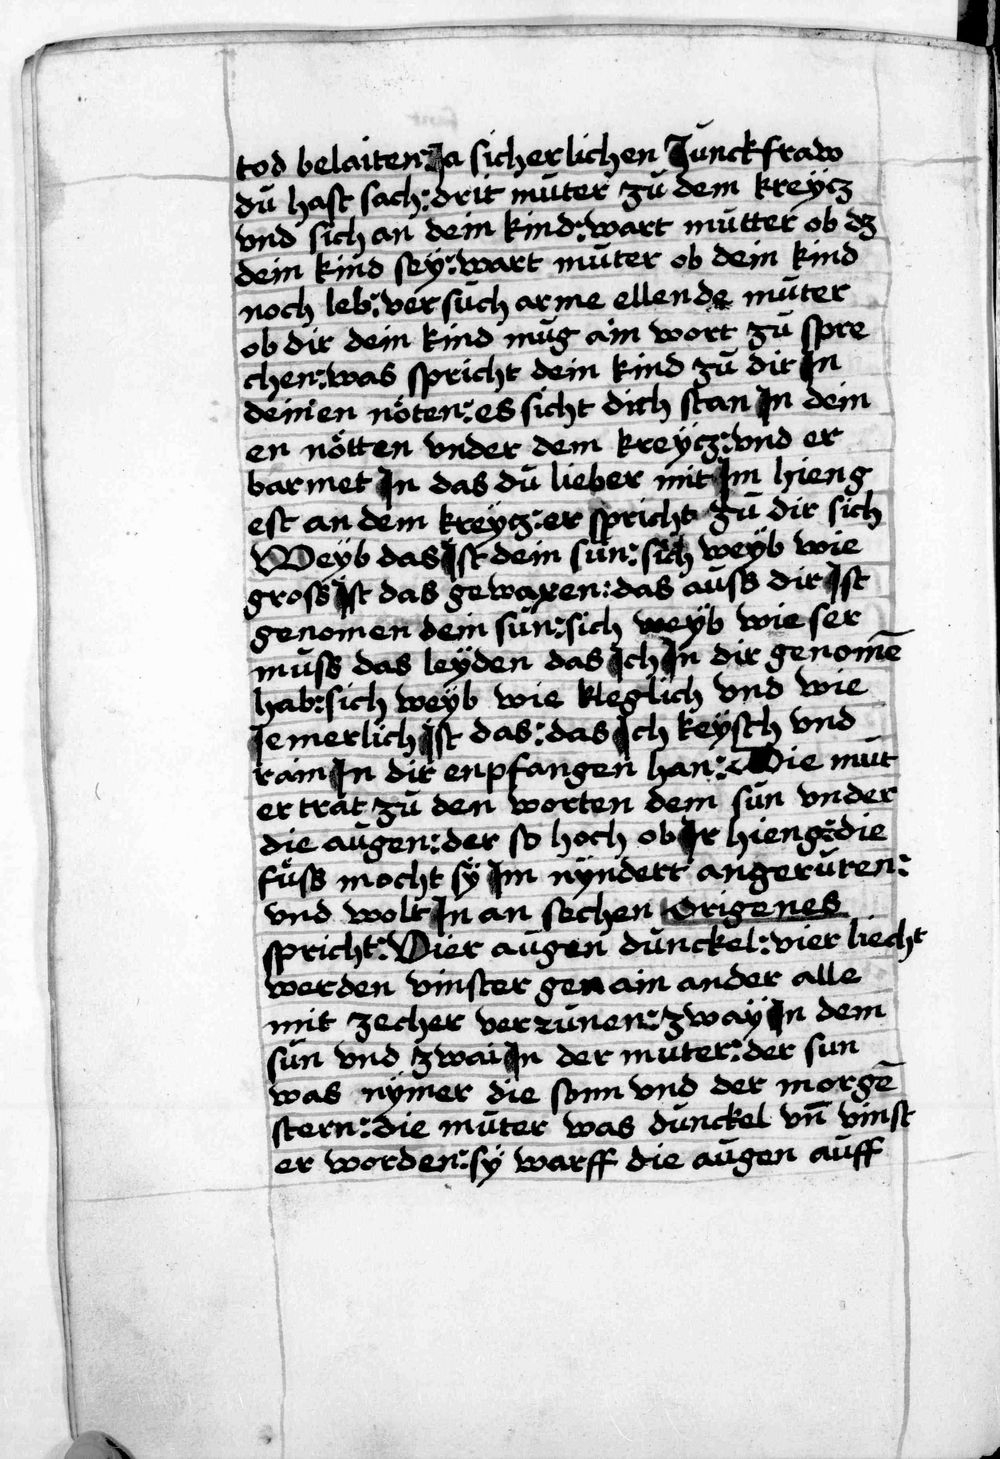 tod belaiten: Ja sicherlichen Junckfraw
dū hast sach: drit mūter zū dem kreÿcz
vnd sich an dein kind: wart mūtter ob dz
dein kind seÿ: wart mūter ob dein kind
noch leb: versūch arme ellende mūter
ob dir dein kind mūg ain wort zū spre
chen: was spricht dein kind zū dir In
deinen nöten: es sicht dich stan In dein
en nötten vnder dem kreÿcz: vnd er
barmet In das dū lieber mit Im hieng
est an dem kreÿcz: er spricht zū dir sich
Weÿb das Ist dein sūn: sich weÿb wie
gross Ist das gewaxen: das aūss dir Ist
genomen dein sūn: sich weÿb wie ser
mūss das leÿden das Ich In dir genomē
hab: sich weÿb wie kleglich vnd wie
Iemerlich Ist das: das Ich keÿsch vnd
rain In dir enpfangen han: Die mūt
er trat zū den worten dem sūn vnder
die aūgen: der so hoch ob Ir hieng: die
füss mocht sÿ Im nÿndert angerūren:
vnd wolt In an sechen Origenes
spricht: Vier aūgen dūnckel: vier liecht
werden vinster gen ain ander alle
mit zecher verzūnen: zwaÿ In dem
sūn vnd zwai In der mūter: der sūn
was nÿmer die sonn vnd der morgē
stern: die mūter was dūnckel vn̄ vinst
er worden: sÿ warff die aūgen aūff